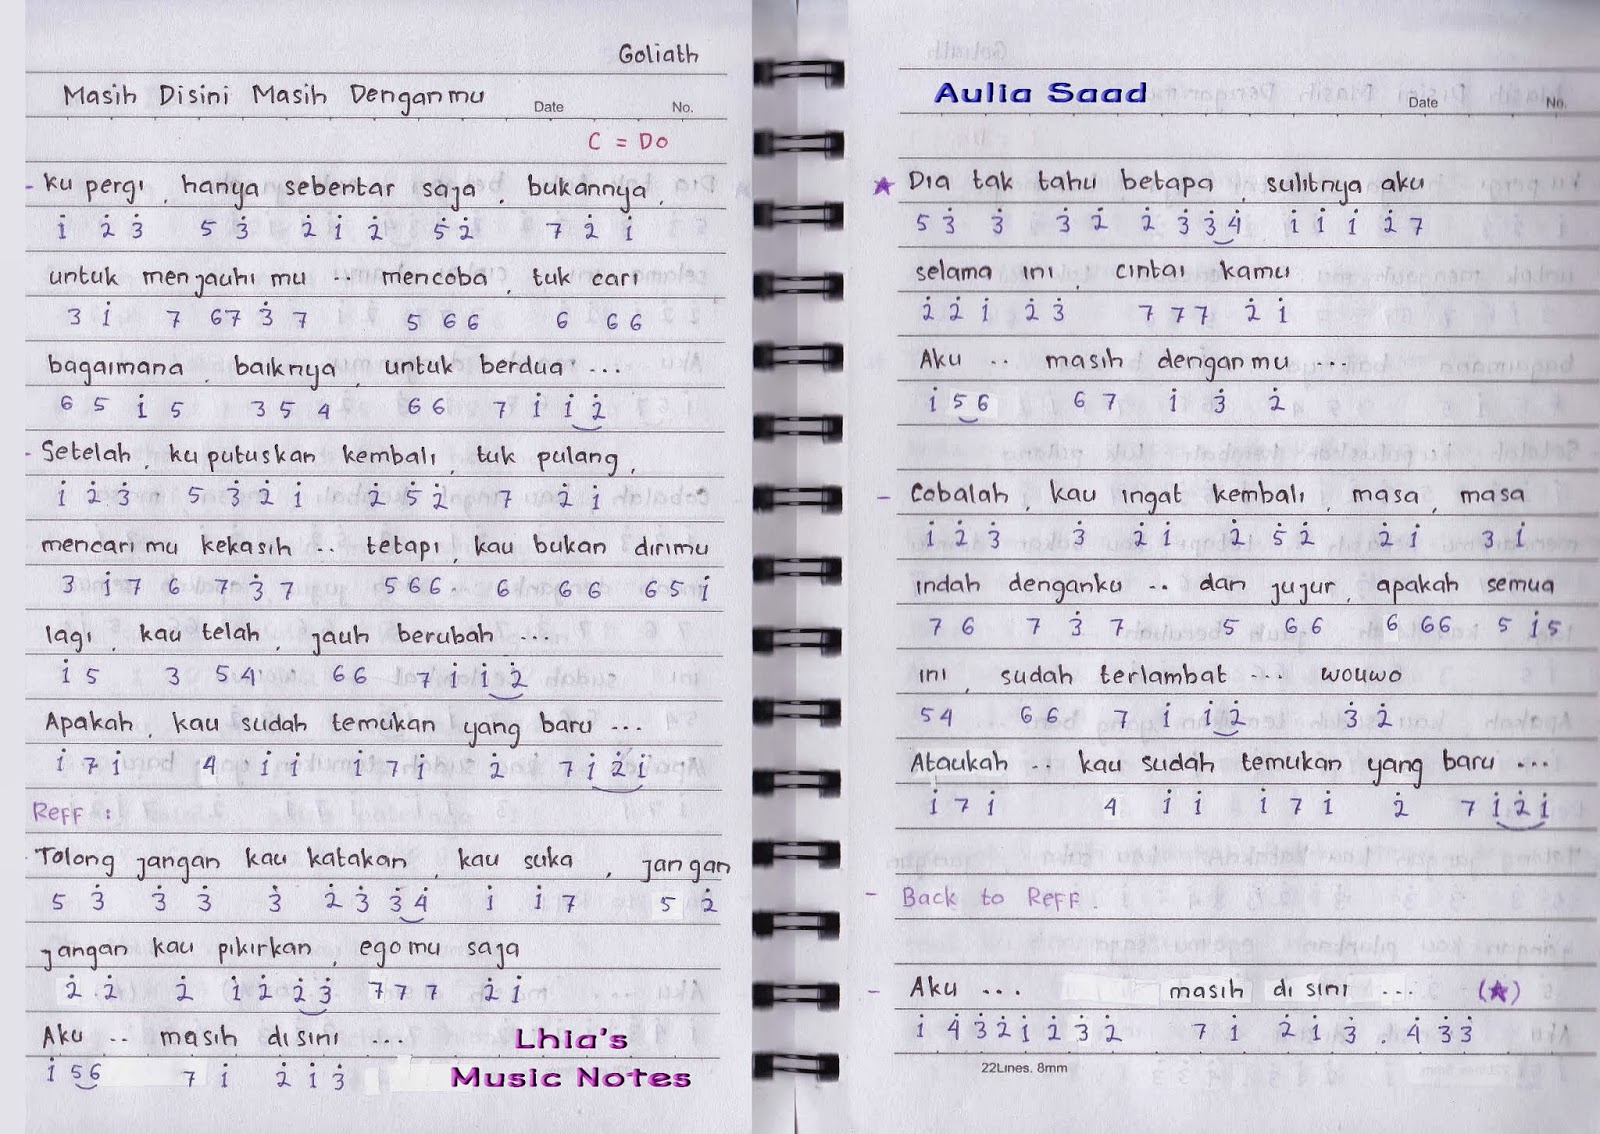 Goliath
Masih Disini Masih Denganmu Date No.
C = Do
- Ku pergi, hanya sebentar saja, bukannya,
i̇ 2̇ 3̇ 5 3̇ 2̇ i̇ 2̇ 5̇ 2̇ 7 2̇ i̇
untuk menjauhi mu .. mencoba, tuk cari
3 i̇ 7 67 3̇ 7 5 66 6 66
bagaimana, baiknya, untuk berdua ...
6 5 i̇ 5 3 5 4 66 7 i̇ i̇ 2̇
- Setelah, ku putuskan kembali, tuk pulang,
i̇ 2̇ 3̇ 5 3̇ 2̇ i̇ 2̇ 5̇ 2̇ 7 2̇ i̇
mencari mu kekasih .. tetapi, kau bukan dirimu
3 i̇ 7 6 7 3̇ 7 566 6 66 65 i̇
lagi, kau telah, jauh berubah ...
i̇ 5 3 54 66 7 i̇ i̇ 2̇
Apakah, kau sudah temukan yang baru ...
i̇ 7 i̇ 4 i̇ i̇ i̇ 7 i̇ 2̇ 7 i̇ 2̇ i̇
Reff :
Tolong jangan kau katakan, kau suka, jangan
5 3̇ 3̇ 3̇ 3̇ 2̇ 3̇ 3̇ 4̇ i̇ i̇ 7 5 2̇
jangan kau pikirkan, ego mu saja
2̇ 2̇ 2̇ i̇ 2̇ 2̇ 3̇ 777 2̇ i̇
Aku .. masih di sini ...
i̇ 56 7 i̇ 2̇ i̇ 3̇
Lhia's
Music Notes
Aulia Saad
Date No.
★ Dia tak tahu betapa, sulitnya aku
5 3̇ 3̇ 3̇ 2̇ 2̇ 3̇ 3̇ 4̇ i̇ i̇ i̇ 2̇ 7
selama ini, cintai kamu
2̇ 2̇ i̇ 2̇ 3̇ 777 2̇ i̇
Aku .. masih denganmu ...
i̇ 56 67 i̇ 3̇ 2̇
- Cobalah, kau ingat kembali, masa, masa
i̇ 2̇ 3̇ 3̇ 2̇ i̇ 2̇ 5̇ 2̇ 2̇ i̇ 3 i̇
indah denganku .. dan jujur, apakah semua
7 6 7 3̇ 7 5 66 6 66 5 i̇ 5
ini, sudah terlambat ... wouwo
54 66 7 i̇ i̇ 2̇ 3̇ 2̇
Ataukah .. kau sudah temukan yang baru ...
i̇ 7 i̇ 4 i̇ i̇ i̇ 7 i̇ 2̇ 7 i̇ 2̇ i̇
- Back to Reff.
- Aku ... masih di sini ... (★)
i̇ 4̇ 3̇ 2̇ i̇ 2̇ 3̇ 2̇ 7 i̇ 2̇ i̇ 3̇ . 4̇ 3̇ 3̇
22Lines. 8mm